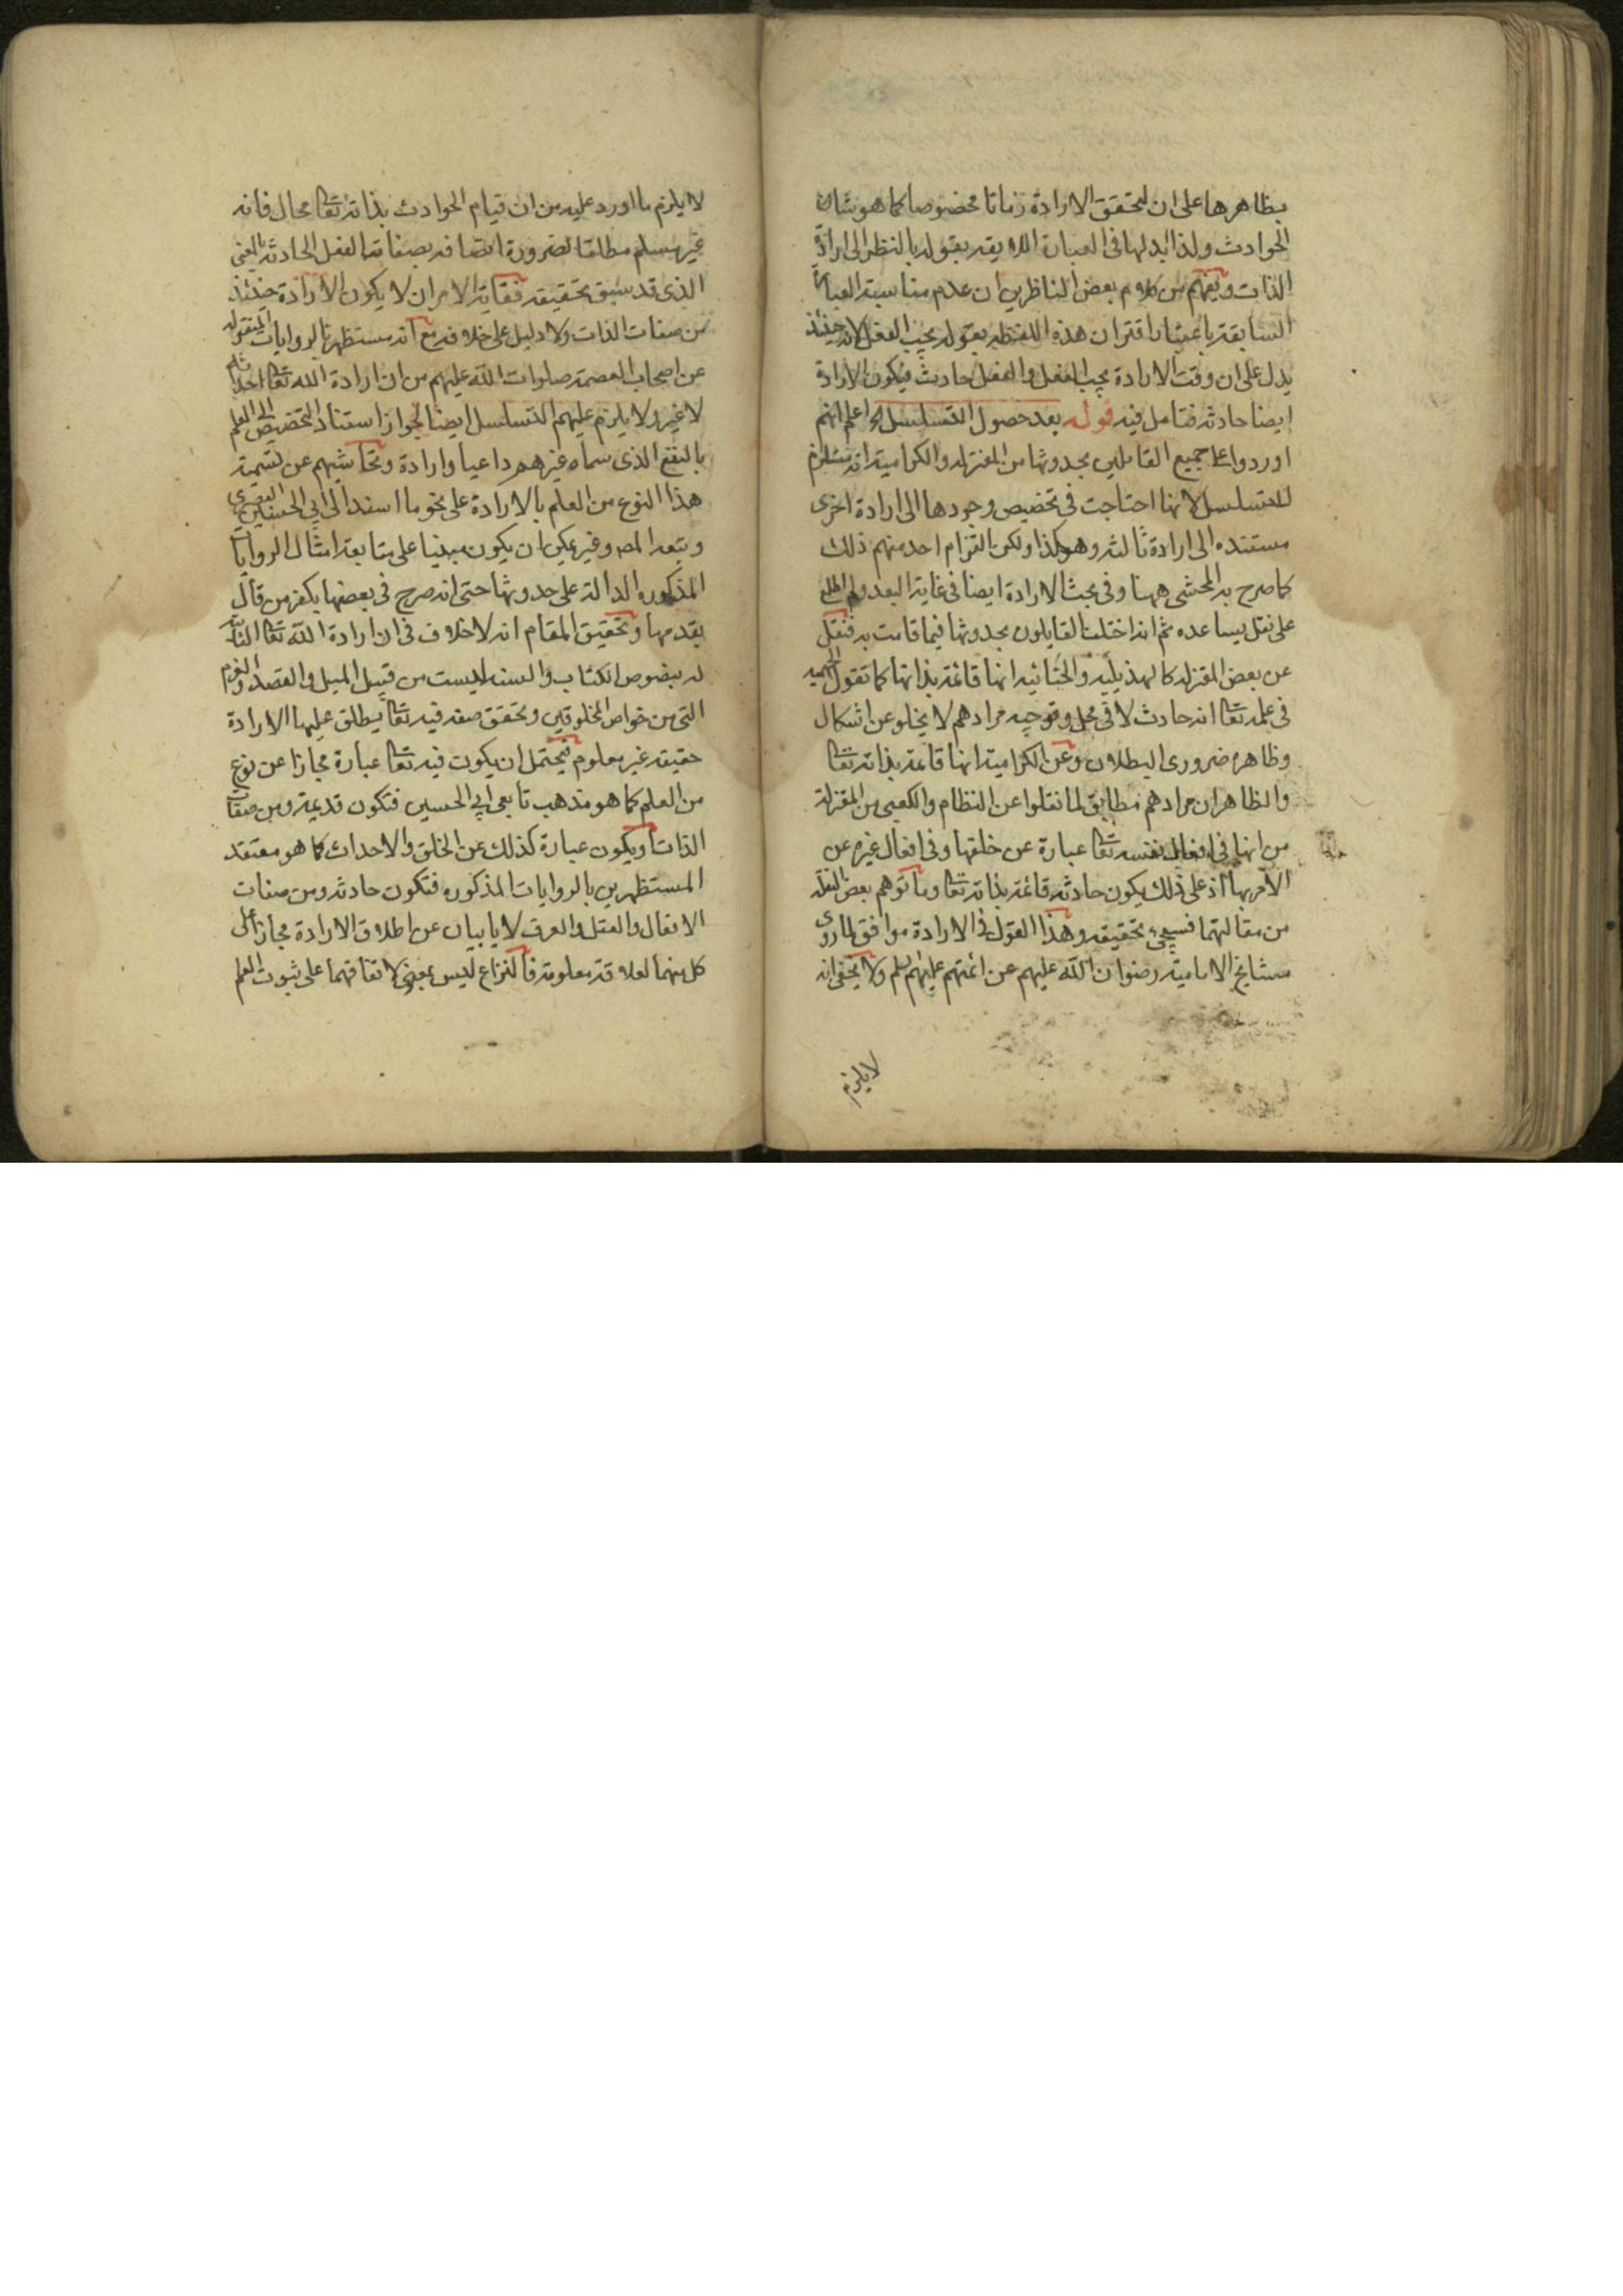 بظاهرها على ان لتحقق الارادة زمانا مخصوصا كما هو شان
الحوادث ولذا ابدلها فى العبارة اللايقه بقوله بالنظر الى ارادة
الذات ويفهم من كلام بعض الناظرين ان عدم مناسبة العبارة
السابقة باعتبار اقتران هذه اللفظه بقوله يجب الفعل لانه حينئذ
يدل على ان وقت الارادة يجب الفعل والفعل حادث فيكون الارادة
ايضا حادثه فتامل فيه قوله بعد حصول التسلسل الخ اعلم انهم
اوردوا على جميع القائلين بحدوثها من المعتزله والكراميه انه يستلزم
للتسلسل لانها احتاجت فى تخصيص وجودها الى ارادة اخرى
مستنده الى ارادة ثالثه وهكذا ولكن التزام احد منهم ذلك
كما صرح به المحشى ههنا وفى بحث الارادة ايضا فى غاية البعد ولم اطلع
على نقل يساعده ثم انه اختلف القايلون بحدوثها فيما قامت به فنقل
عن بعض المعتزله كالهذيليه والجبائيه انها قائمة بذاتها كما تقول الجهميه
فى علمه تعالى انه حادث لا فى محل وتوجيه مرادهم لا يخلو عن اشكال
وظاهره ضرورى البطلان وعن الكرامية انها قائمة بذاته تعالى
والظاهر ان مرادهم مطابق لما نقلوا عن النظام والكعبى من المعتزلة
من انها فى افعال نفسه تعالى عبارة عن خلقها وفى افعال غيره عن
الامر بها اذ على ذلك يكون حادثه قائمة بذاته تعالى وما توهم بعض النقله
من مقالتهما فسيجئ تحقيقه وهذا القول فى الارادة موافق لما روى
مشايخ الامامية رضوان الله عليهم عن ائمتهم عليهم السلم ولا يخفى انه
لا يلزم
لا يلزم ما اورد عليه من ان قيام الحوادث بذاته تعالى محال فانه
غير مسلم مطلقا لضرورة اتصافه بصفاته الفعل الحادثه بالمعنى
الذى قد سبق تحقيقه فغاية الامر ان لا يكون الارادة حينئذ
من صفات الذات ولا دليل على خلافه مع انه مستظهر بالروايات المنقوله
عن اصحاب العصمة صلوات الله عليهم من ان ارادة الله تعالى احداثه
لا غير ولا يلزم عليهم التسلسل ايضا لجواز استناد التخصيص الى العلم
بالنفع الذى سماه غيرهم داعيا وارادة وتحاشيهم عن تسمية
هذا النوع من العلم بالارادة على نحو ما اسند الى ابى الحسين البصرى
وتبعه المص وغيره يمكن ان يكون مبنيا على متابعة امثال الروايات
المذكوره الدالة على حدوثها حتى انه صرح فى بعضها بكفر من قال
بقدمها وتحقيق المقام انه لا خلاف فى ان ارادة الله تعالى الثابتة
له بنصوص الكتاب والسنة ليست من قبيل الميل والقصد والعزم
التى من خواص المخلوقين وتحقق صفه فيه تعالى يطلق عليها الارادة
حقيقه غير معلوم فيحتمل ان يكون فيه تعالى عبارة مجازا عن نوع
من العلم كما هو مذهب تابعى ابى الحسين فتكون قديمة ومن صفات
الذات ويكون عبارة كذلك عن الخلق والاحداث كما هو معتقد
المستظهرين بالروايات المذكوره فتكون حادثه ومن صفات
الافعال والعقل والعرف لا يابيان عن اطلاق الارادة مجازا على
كل منهما لعلاقة معلومة فالنزاع ليس بمعنى لاتفاقهما على ثبوت العلم